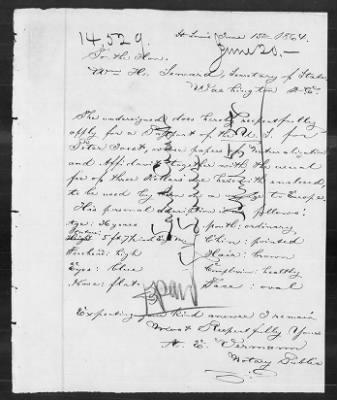 14,529.
St Louis, June 15th 1864.
June 20.—
To the Hon.
Wm H. Seward, Secretary of State,
Washington D.C.
The undersigned does hereby respectfully
apply for a Passport of the U. S. for
Peter whose papers of Naturalization
and Affidavit together with the usual
fee of three dollars are herewith enclosed,
to be used by him on a to Europe.
His personal description is as follows:
Age: years Mouth: ordinary
Stature: 5 ft 7 Chin: pointed
Forehead: high Hair: brown
Eyes: blue Complexion: healthy
Nose: flat Face: oval
Expecting your kind answer I remain
Most Respectfully Yours
A. E.
Notary Public